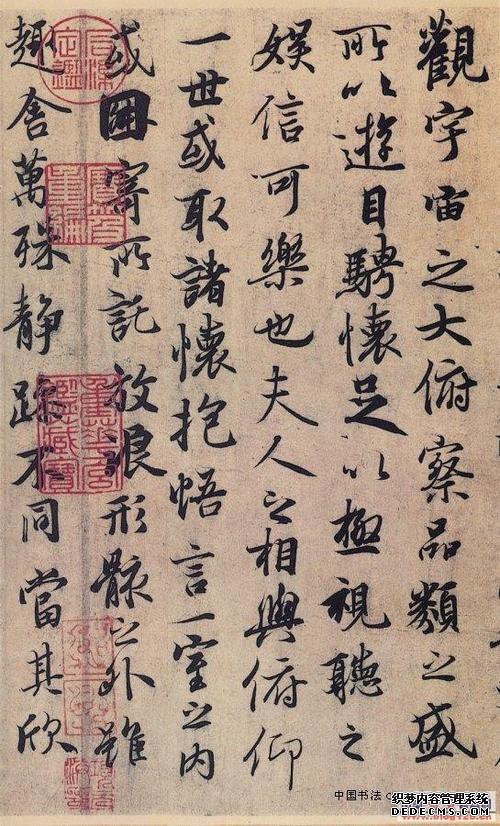 觀宇宙之大俯察品類之盛
所以遊目騁懷足以極視聽之
娛信可樂也夫人之相與俯仰
一世或取諸懷抱悟言一室之內
或因寄所託放浪形骸之外雖
趣舍萬殊静躁不同當其欣
中国书法
织梦内容管理系统
DEDECMS.COM